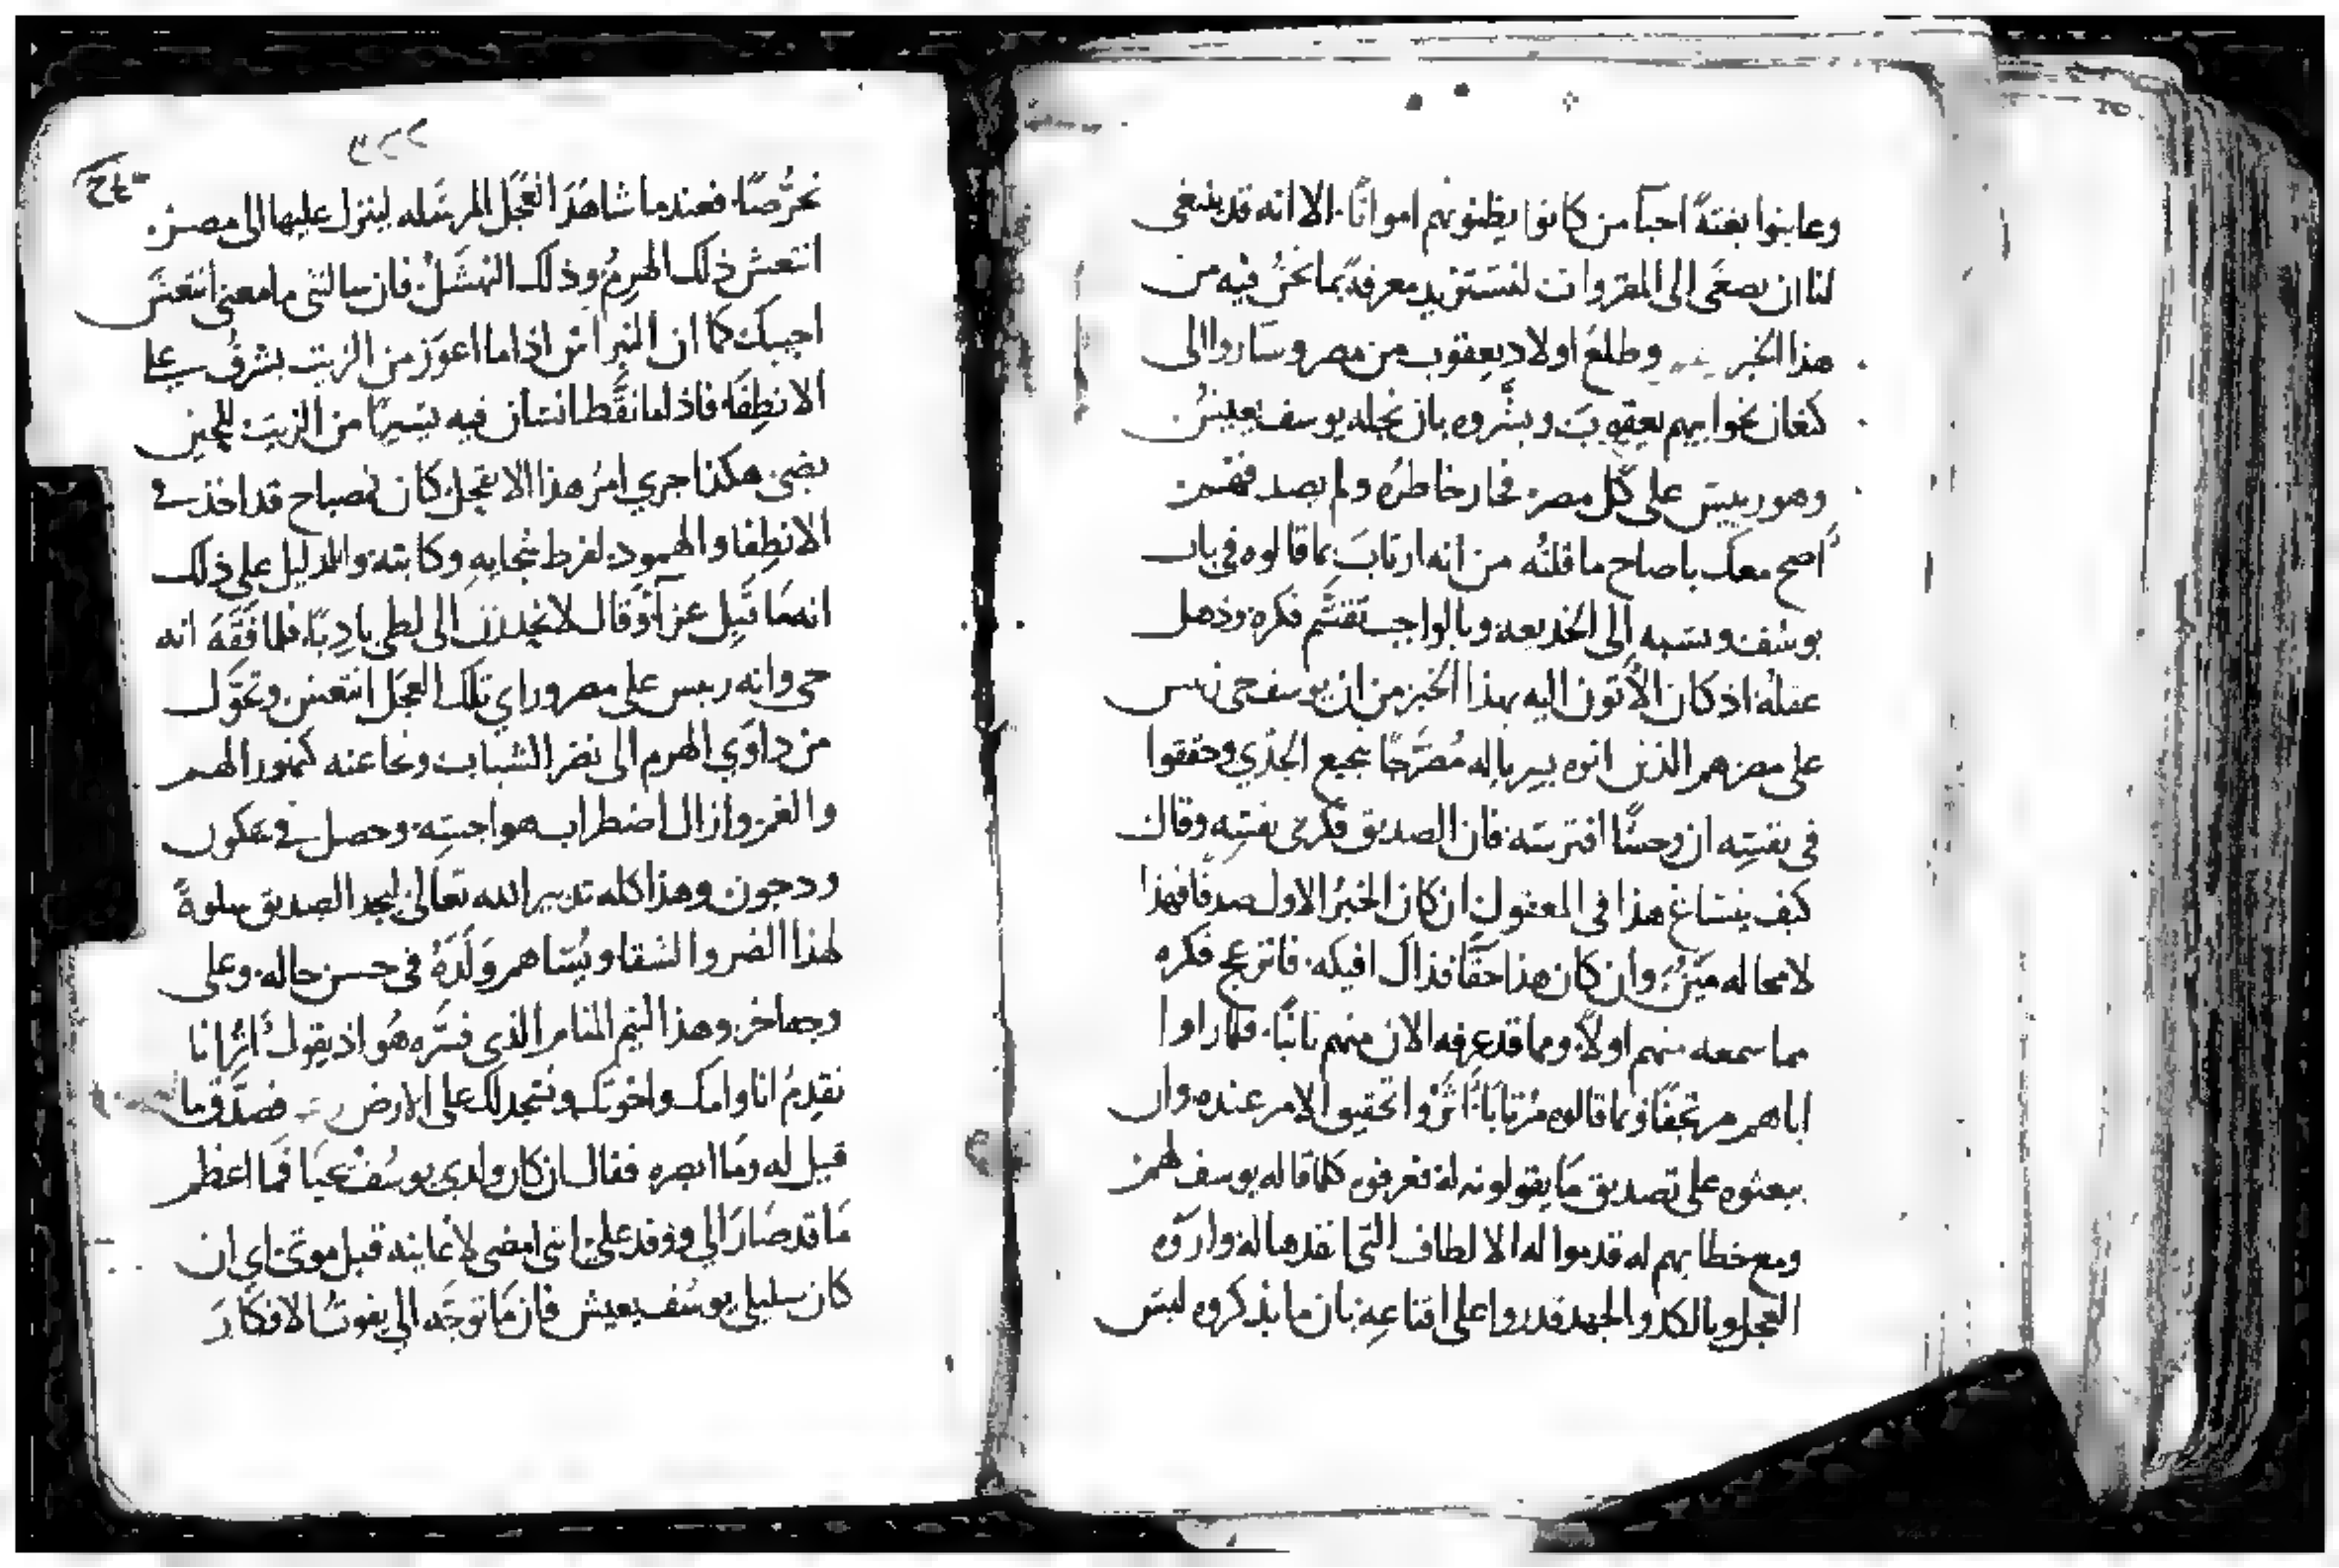 وعاينوا بغتةً احياً من كانوا يظنونهم امواتًا. الا انه قد ينبغي
لنا ان نصغى الى المقروات لنستزيد معرفةً بما نحنُ فيه من
هذا الخبر وطلعُ اولاد يعقوب من مصر وساروا الى
كنعان نحوا بيهم يعقوبَ وبشَّروه بان نجله يوسف يعيشُ
وهو رييس على كل مصر. فحار خاطرُه ولم يصدقهم
اصح معك ياصاح ما قلتُه من انه ارتابَ بما قالوه في باب
يوسُف ونسبه إلى الخديعه وبالواجب تقسَّم فكره وذهل
عقلهُ اذ كان الأتون اليه بهذا الخبر من ان يوسف حي رييس
على مصر هم الذين اتوه بسرباله مُضرَّجًا بنجيع الجدي وحققوا
في نفسِه ان وحشًا افترسَه فان الصديق فكر في نفسِه وقال
كيف ينساغ هذا في المعقول ان كان الخبرُ الاول صدقًا فهذا
لامحاله مَيْنٌ، وان كان هذا حقًا فذاك افيكه. فانزعج فكره
مما سمعه منهم اولاً ومما قد عرفه الان منهم ثانيًا. فلما راوا
اباهم مرتجفًا وبما قالوه مُرتابًا اثَرُوا تحقيق الامر عنده وان
يبعثوه على تصديق ما يقولونه له فعرفوه كلما قاله يوسف لهم
ومع خطابهم له قدموا له الالطاف التي انفدها له واروَه
العجل وبالكد والجهد قدروا على اقناعِه بان ما يذكروه ليسَ
تخرُّصًا. فعندما شاهَدَ العَجَل المرسَله لينزل عليها الى مصر.
انتعش ذلك الهرِمُ وذلك النهشَلُ. فان سالتني ما معنى انتعشَ
اجيبك كما ان النبراس اذا ما اعوَزَ من الزيت يشرفُ على
الانطِفَاء فاذا ما نقَّط انسان فيه يسيرًا من الزيت للحين
يضي هكذا جرى امرُ هذا الا بجل كان كمصباح قد اخذ في
الانطِفا والهمود لفرط شجابه وكابته والدليل على ذلك
انه مَا قَبِل عزآءً وقال لانحدرن الى لظى نادبًا، فلما فَقَهَ انه
حي وانه رييس على مصر وراي تلك العجَل انتعش وتحوَّل
من ذاوَي الهرم الى نضر الشباب ونحا عنه كنهورَ الهم
والغم وازال اضطراب هواجسِه. وحصل في عكون
ودجون وهذا كله تدبير الله تعالى ليجد الصديق سلوةً
لهذا الضر والشقا ويُسَاهم وَلَدَهُ في حسن حاله. وعلى
وجهاخر. وهذا ليتم المنام الذي فسَّره هُو اذ يقول اتُرانا
نقدِمُ انا وامك واخوتك ونسجد لك على الارض فصدَّق ما
قيل له ومَا ابصره فقال ان كان ولدي يوسُفْ حيًا فمَا اعظم
مَا قد صَارَ الي ووفد علي. اننى امضى لاعاينه قبل موتي اي ان
كان سليلى يوسُف يعيش فان مَا توجَّه الي يفوتُ الافكارَ